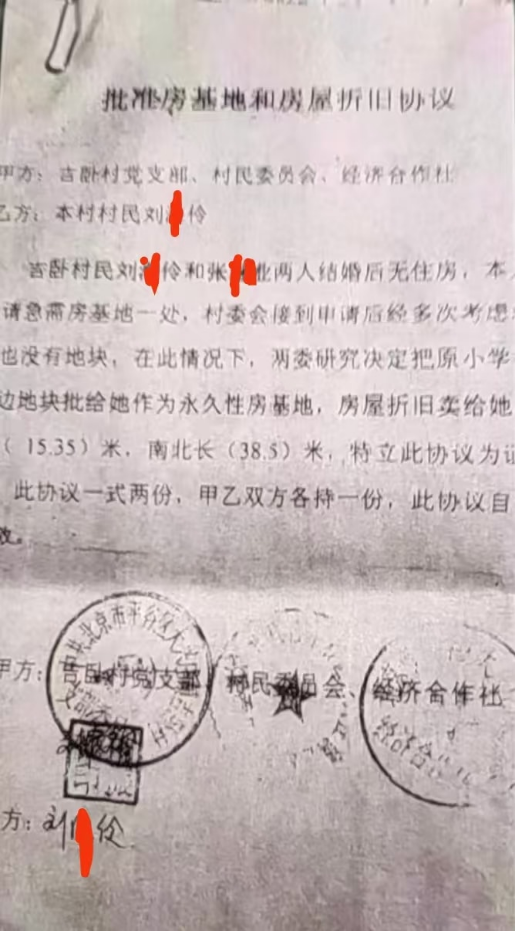 批准房基地和房屋折旧协议
甲方：吉卧村党支部、村民委员会、经济合作社
乙方：本村村民刘 伶
吉卧村民刘 伶和张 业两人结婚后无住房，本
请急需房基地一处，村委会接到申请后经多次考虑
也没有地块，在此情况下，两委研究决定把原小学
边地块批给她作为永久性房基地，房屋折旧卖给她
（15.35）米，南北长（38.5）米，特立此协议为
此协议一式两份，甲乙双方各持一份，此协议自
效。
甲方：吉卧村党支部、村民委员会、经济合作社
方：刘 伶